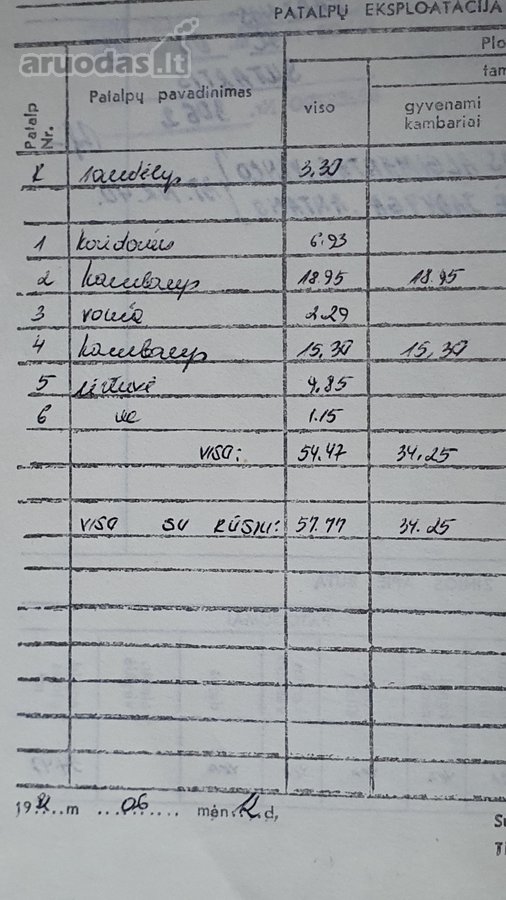 PATALPŲ EKSPLOATACIJA
aruodas.lt
Patalp Nr.
Patalpų pavadinimas
Plo
viso
tam
gyvenami
kambariai
R sandėlys 3,30
1 koridorius 6.93
2 kambarys 18.95 18.95
3 vonia 2.29
4 kambarys 15,30 15,30
5 virtuvė 9,85
6 wc 1.15
VISO: 54.47 34.25
VISO SU RŪSIU: 57.77 34.25
19 m 06 mėn. d,
Su